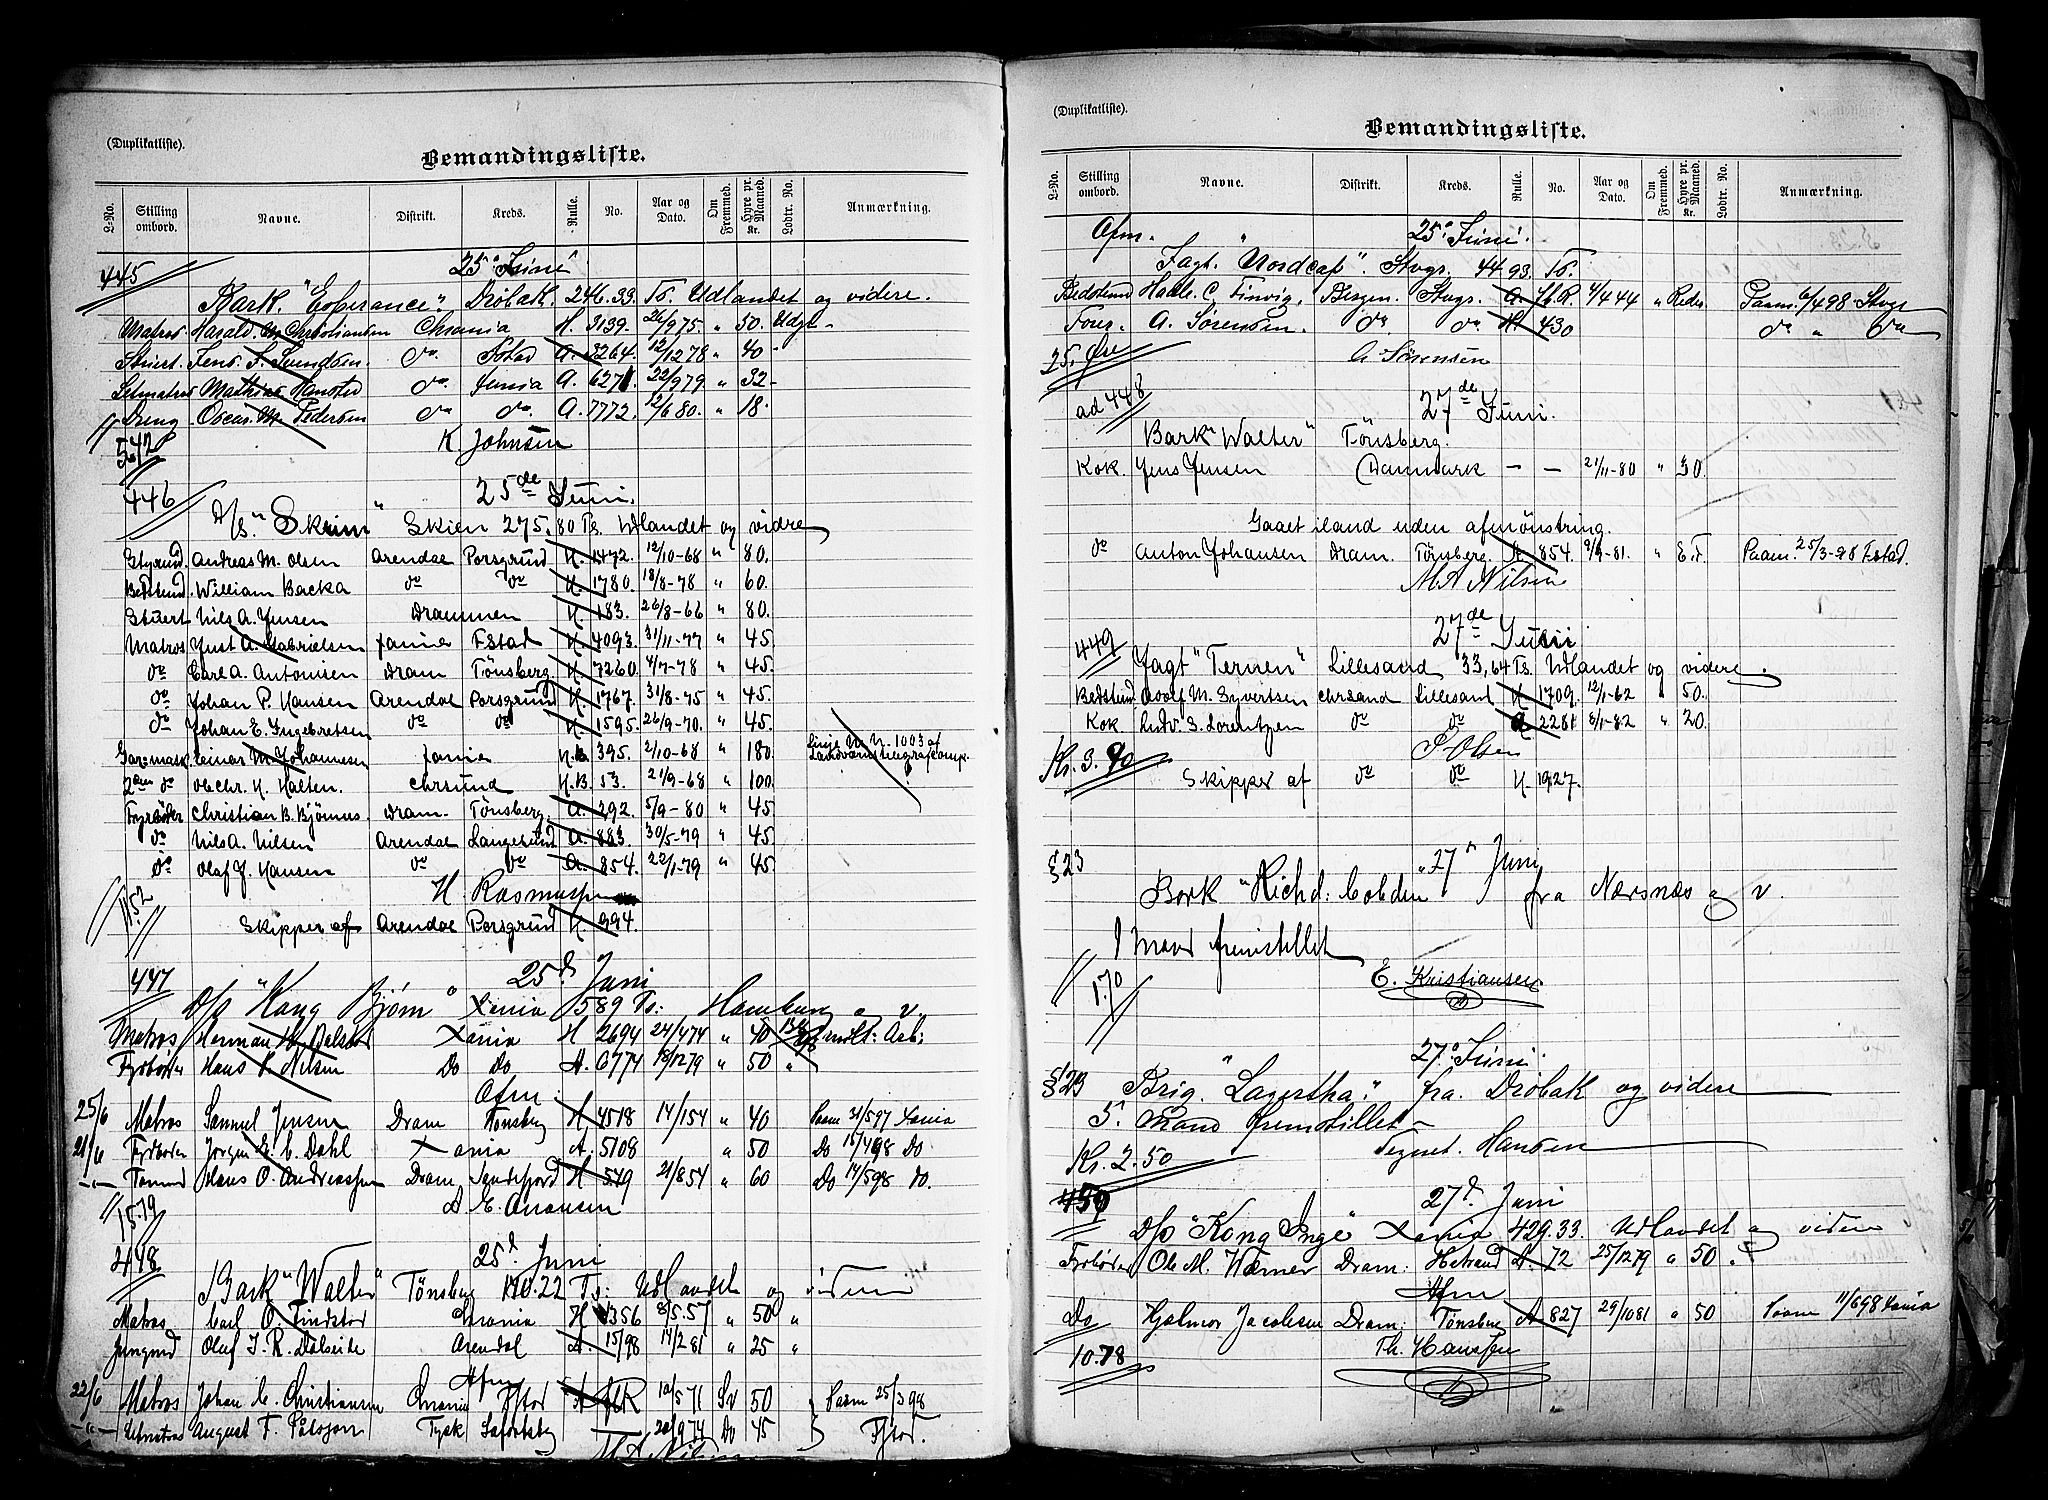 (Duplikatliste).
Bemandingsliste.
L-No. Stilling ombord. Navne. Distrikt. Kreds. Rulle. No. Aar og Dato. Om Fremmed. Hyre pr. Maaned. Kr. Lodtr. No. Anmærkning.
445 25. Juni
Bark. "Esperance". Dröbak. 246.33. Ts. Udlandet og videre.
Matros Harald M. Christiansen Chrania H. 3139. 26/975. " 50. Udgt
Stuert. Jens S. Svendsen. do. Fstad A. 3264. 12/1278 " 40
Letmatros Mathias Hansted do. Xania A. 6271. 22/979 " 32
Dreng Oscar M. Pedersen do do. A. 7772. 12/680. " 18.
5.42 K. Johnsen
446 25de Juni.
D/s "Skrim" Skien 275.80 Ts. Udlandet og vidre
Styrmd. Andreas M. Olsen Arendal Porsgrund H. 1472. 12/10-68 " 80.
Bedstmd. William Backa do do H. 1780. 18/8-78 " 60.
Stuert Nils A. Jensen Drammen H. 183. 26/8-66 " 80.
Matros Just A. Gabrielsen Xania Fstad H. 4093. 31/11-77 " 45.
do Carl A. Antonisen Dram Tönsberg. H. 7260. 4/7-78 " 45.
do Johan P. Hansen Arendal Porsgrund H. 1767. 31/8-75 " 45.
do Johan E. Ingebretsen do do H. 1595. 26/9-70. " 45.
Einar M. Johannesen Xania 395. 2/10-68 " 180. Linje M. N. 1003 af
2den do Ole Chr. H. Halten. Chrsund H.B. 53. 21/9-68 " 100.
Fyrböder Christian B. Björnnes Dram. Tönsberg. A. 292. 5/9-80 " 45
do Nils A. Nilsen Arendal Langesund A. 883. 30/5-79 " 45
do Olaf J. Hansen do do A. 854. 22/1-79 " 45.
11.52 H. Rasmussen
Skipper af Arendal Porsgrund H. 994.
447 25d Juni
D/s "Kong Bjørn" Xania 589 Ts: Hamburg o v.
Matros Herman H. Xania H 2694 24/474 " 40
Fyrböder Hans P. Nilsen Do Do A. 6774 18/1279 " 50 "
Afm.
25/6 Matros Samuel Jensen Dram Tönsberg H 4518 14/154 " 40 Paam 31/597 Xania
21/6 Fyrböder Jörgen E. C. Dahl Xania A. 5108 " 50 Do 15/498 Do
-"- Tømmd Hans O. Andreassen Dram Sandefjord H 549 21/854 " 60 Do 14/598 Do.
15.79 A. E. Aronsen
448 25d Juni
Bark "Walter" Tönsberg 1170.22 Ts: Udlandet og videre
Matros Carl O. Lindstöd Chrania H 1356 8/5.57 " 50 "
Jungmd Olaf T. R. Dalseide Arendal A 15/98 14/281 " 25 "
Afm
22/6 Matros Johan C. Christiansen Chrania Fstad 10/571 Sv 50 Paam 25/398
-"- Letmatros August F. Tysk 20/974 Do 45 Fstad.
M. A. Nilsen
(Duplikatliste).
Bemandingsliste.
L-No. Stilling ombord. Navne. Distrikt. Kreds. Rulle. No. Aar og Dato. Om Fremmed. Hyre pr. Maaned. Kr. Lodtr. No. Anmærkning.
Afm. 25. Juni.
Jagt. "Nordcap". Stvgr. 44.93. Ts.
Bedstmd Haale. C. Finvig. Bergen. Stvgr. 4/444 " Reder. Paam. 6/498 Stvgr
Forer. A. Sørensen. do do H 430 do " do
25. Øre A Sörensen
ad 448 27de Juni.
Bark "Walter" Tönsberg.
Kok. Jens Jensen Danmark — — 21/11-80 " 30.
Gaaet iland uden afmönstring.
do Anton Johansen Dram. Tönsberg A 854. 9/9-81. " E.F. Paam. 25/3-98 Fstad.
M A Nilsen
449 27de Juni
Jagt "Ternen" Lillesand 33,64 Ts. Udlandet og videre.
Bedstmd. Adolf M. Syvertsen Chrsand Lillesand H 1709. 12/1-62 " 50.
Kok Ludv. S. Lorentzen do do A 2281 8/1-82 " 20.
Kr. 3.90 P Olsen
Skipper af do do H. 1927.
§ 23 27. Juni
Bark "Richd: Cobden" fra Nærsnæs og v.
1 Mand fremstillet
1.70 E. Kristiansen
27. Juni
§ 23 Brig. "Lagertha." fra. Dröbak og videre
5. Mand fremstillet
Kr. 2.50 Tegnet. Hansen
450 27d Juni
D/s "Kong Inge" Xania 429.33. Udlandet og videre
Fyrböder Ole M. Werner Dram: Hstrand A. 72 25/1279 " 50 "
Afm
Do Hjalmar Jacobsen Dram: Tönsberg A 827 29/1081 " 50 Paam 11/698 Xania
10.78 Th. Hanssen